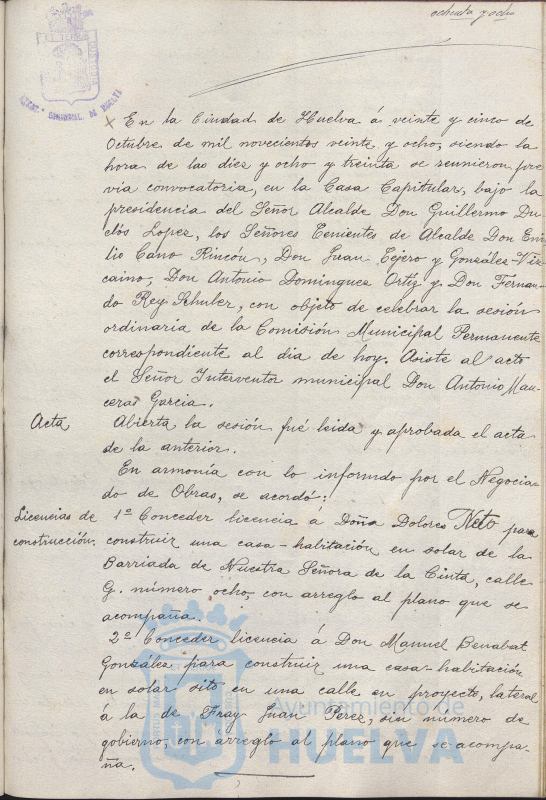 ochenta y ocho
ARCHº MUNICIPAL DE HUELVA
En la Ciudad de Huelva á veinte y cinco de
Octubre de mil novecientos veinte y ocho, siendo la
hora de las diez y ocho y treinta se reunieron, pre
via convocatoria, en la Casa Capitular, bajo la
presidencia del Señor Alcalde Don Guillermo Du
clós Lopez, los Señores Tenientes de Alcalde Don Emi
lio Cano Rincón, Don Juan Tejero y González-Viz
caino, Don Antonio Dominguez Ortíz y Don Fernan-
do Rey Schuler, con objeto de celebrar la sesión
ordinaria de la Comisión Municipal Permanente
correspondiente al dia de hoy. Asiste al acto
el Señor Interventor municipal Don Antonio Man
cera Garcia.
Acta
Abierta la sesión fué leida y aprobada el acta
de la anterior.
En armonía con lo informado por el Negocia-
do de Obras, se acordó:
Licencias de
construcción.
1º Conceder licencia á Doña Dolores Neto para
construir una casa-habitación en solar de la
Barriada de Nuestra Señora de la Cinta, calle
G. número ocho, con arreglo al plano que se
acompaña.
2º Conceder licencia á Don Manuel Benabat
González para construir una casa-habitación
en solar sito en una calle en proyecto, lateral
á la de Fray Juan Perez, sin número de
gobierno, con arreglo al plano que se acompa-
ña.
Ayuntamiento de
HUELVA